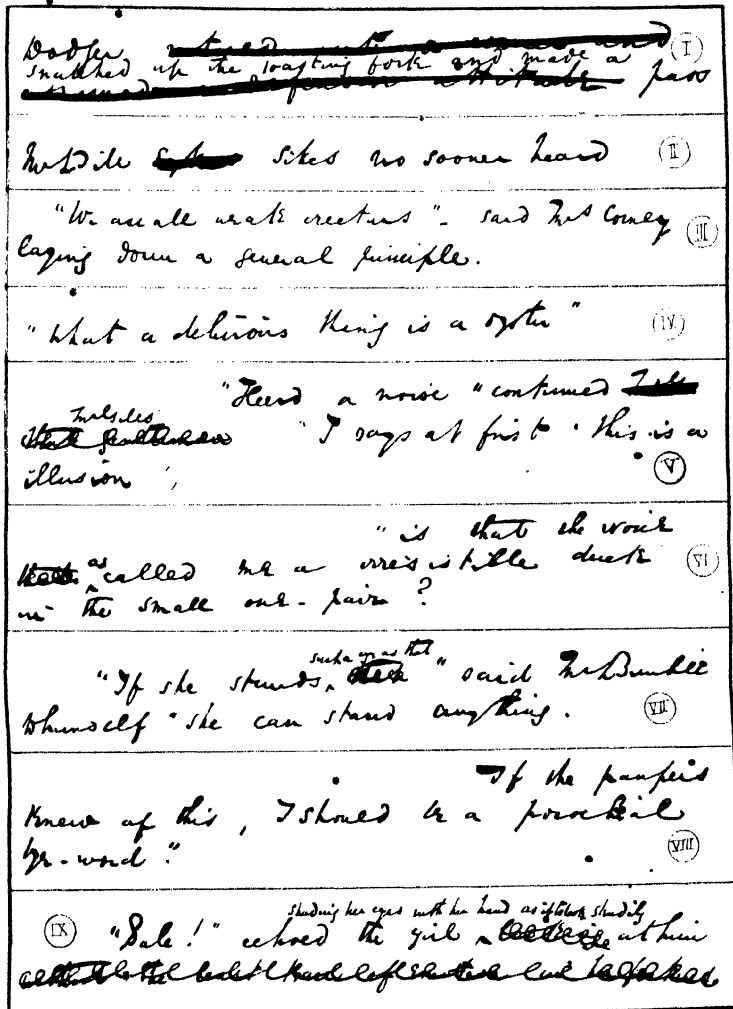 Dodger
snatched up the toasting fork and made a pass I
Mr Bill Sikes no sooner heard II
"We are all weak creeturs" - said Mrs Corney III
laying down a general principle.
"What a delicious thing is a oyster" IV
"Heerd a noise" continued
Mr Giles "I says at first · this is a
illusion V
"is that the woice
as called me a irresistible duck VI
in the small one-pair?
such a eye as that
"If she stands, " said Mr Bumble
to himself "she can stand anything. VII
If the paupers
knew of this, I should be a porochial
bye-word." VIII
shading her eyes with her hand as if to look steadily
IX "Bale!" echoed the girl at him